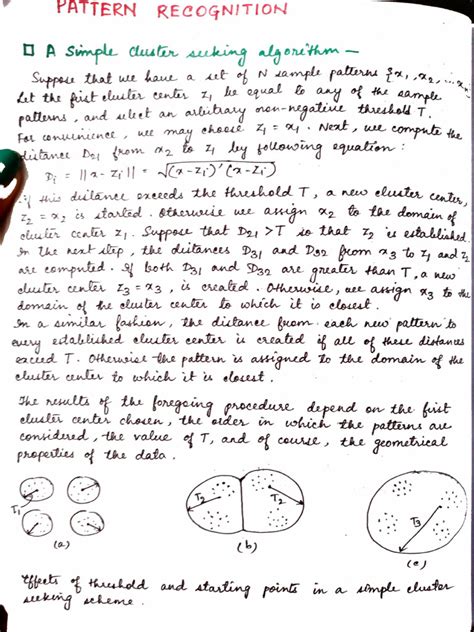 PATTERN RECOGNITION
□ A Simple cluster seeking algorithm —
Suppose that we have a set of N sample patterns {x1, x2, ... xN}
Let the first cluster center z1 be equal to any of the sample
patterns, and select an arbitrary non-negative threshold T.
For convenience, we may choose z1 = x1. Next, we compute the
distance D21 from x2 to z1 by following equation:
Di = ||x - zi|| = √(x-zi)'(x-zi)
if this distance exceeds the threshold T, a new cluster center,
z2 = x2 is started. Otherwise we assign x2 to the domain of
cluster center z1. Suppose that D21 > T so that z2 is established.
In the next step, the distances D31 and D32 from x3 to z1 and z2
are computed. If both D31 and D32 are greater than T, a new
cluster center z3 = x3, is created. Otherwise, we assign x3 to the
domain of the cluster center to which it is closest.
In a similar fashion, the distance from each new pattern to
every established cluster center is created if all of these distances
exceed T. Otherwise the pattern is assigned to the domain of the
cluster center to which it is closest.
The results of the foregoing procedure depend on the first
cluster center chosen, the order in which the patterns are
considered, the value of T, and of course, the geometrical
properties of the data.
T1
T2
T2
T3
(a)
(b)
(c)
Effects of threshold and starting points in a simple cluster
seeking scheme.